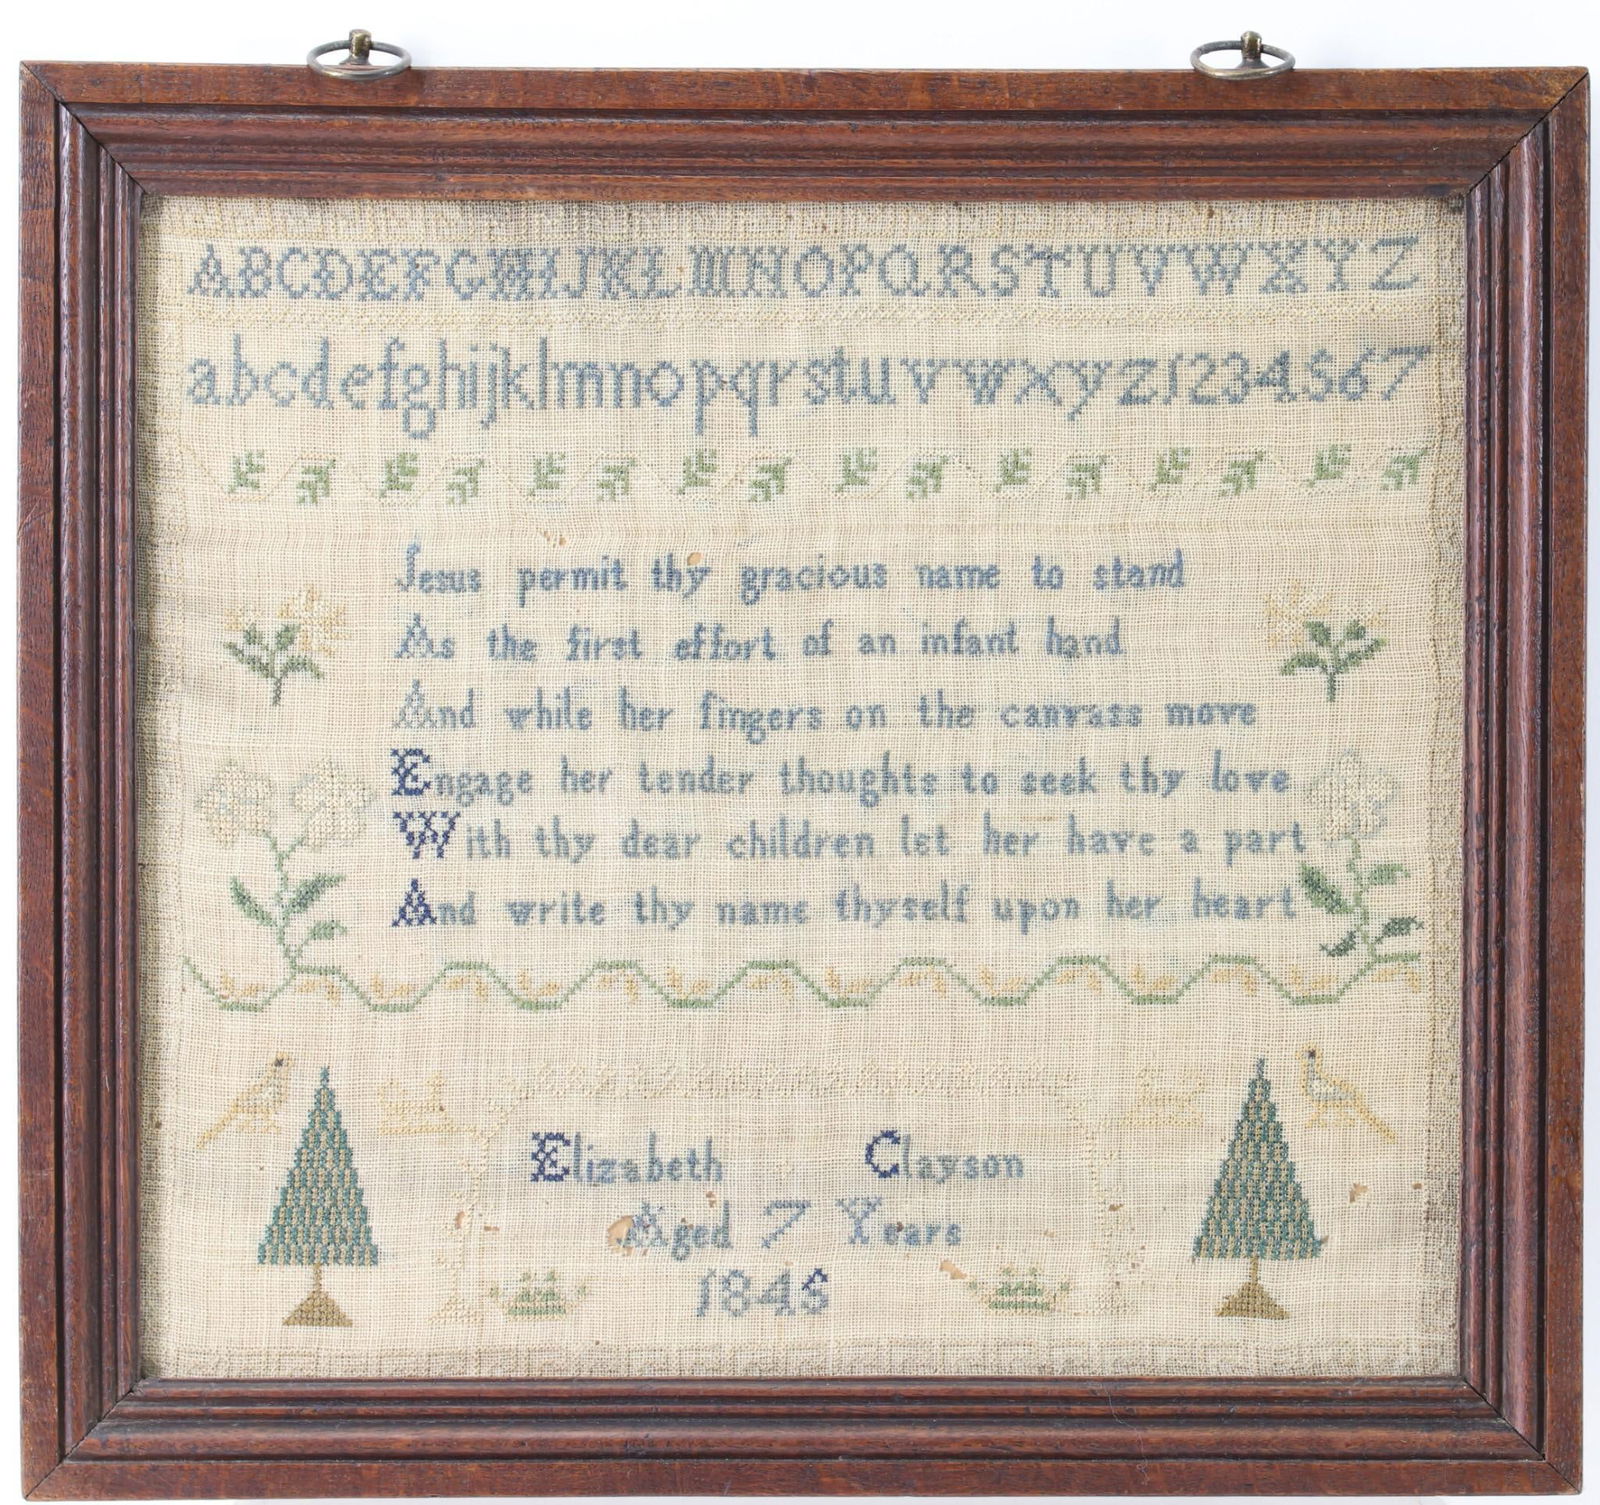 ABCDEFGHIJKLMNOPQRSTUVWXYZ
abcdefghijklmnopqrstuvwxyz1234567
Jesus permit thy gracious name to stand
As the first effort of an infant hand
And while her fingers on the canvass move
Engage her tender thoughts to seek thy love
With thy dear children let her have a part
And write thy name thyself upon her heart
Elizabeth Clayson
Aged 7 Years
1845